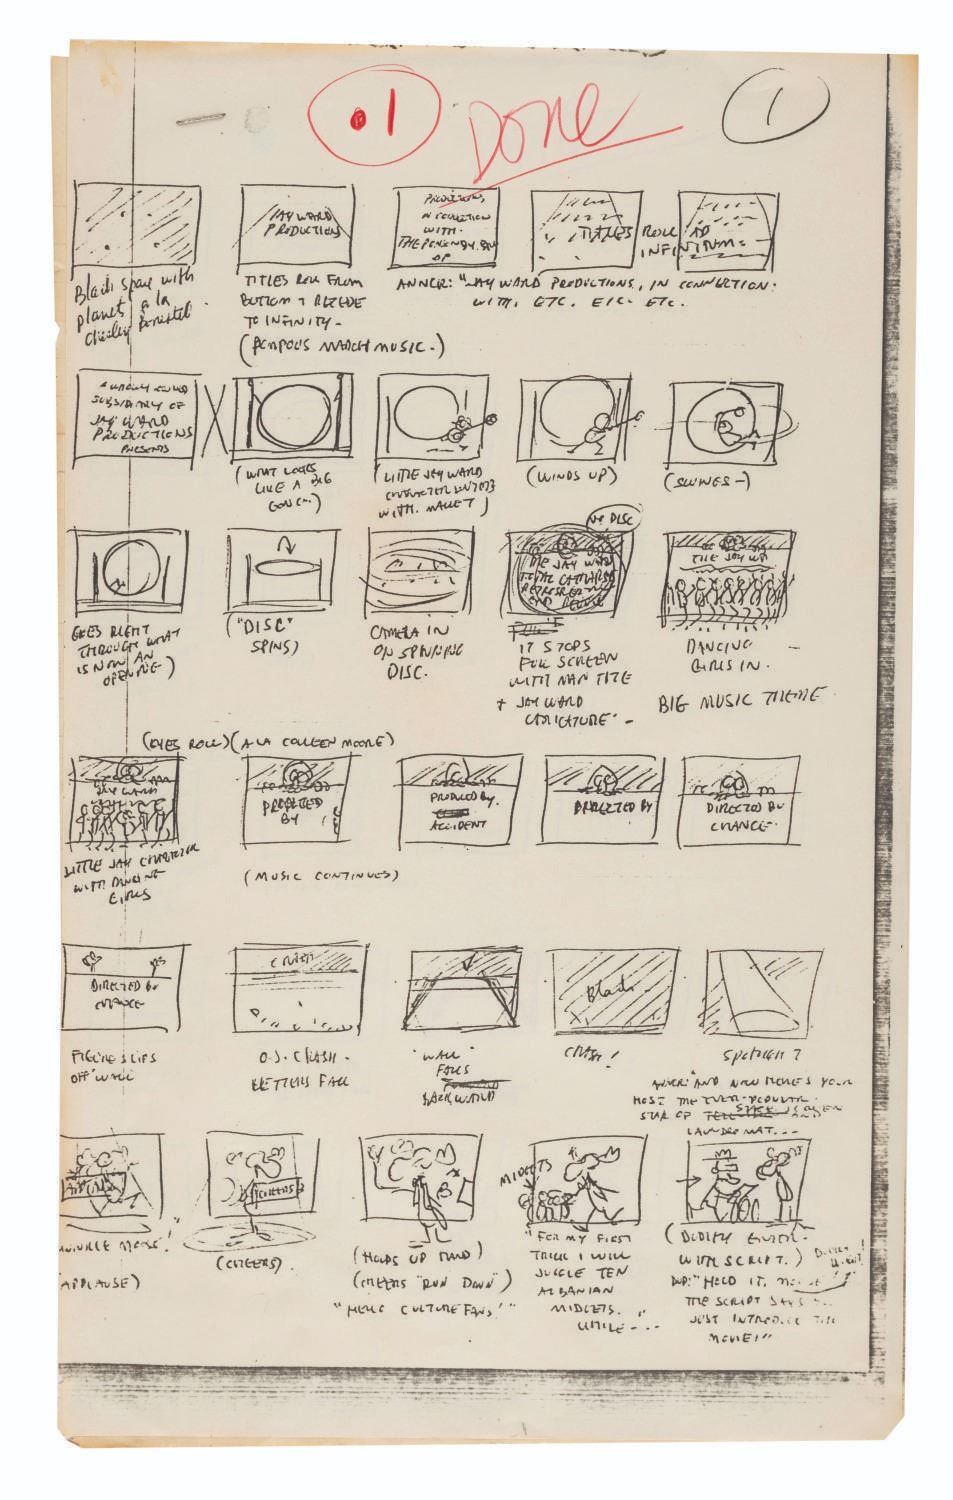 01
Done
1
JAY WARD
PRODUCTIONS
PRODUCTIONS,
IN CONNECTION
WITH.
OF
TITLES
ROLL AD
INFINITUM.
Black space with
planets a la
TITLES ROLL FROM
BOTTOM & RECEDE
TO INFINITY.
(POMPOUS MARCH MUSIC.)
ANNCR: "JAY WARD PRODUCTIONS, IN CONNECTION.
WITH, ETC. ETC. ETC.
SUBSIDIARY OF
JAY WARD
PRODUCTIONS
PRESENTS
X
(WHAT LOOKS
LIKE A BIG
GONG...)
(LITTLE JAY WARD
CHARACTER ENTERS
WITH MALLET)
(WINDS UP)
(SWINGS-)
GOES RIGHT
THROUGH WHAT
IS NOW AN
OPENING)
("DISC"
SPINS)
CAMERA IN
ON SPINNING
DISC.
DISC
THE JAY WARD
IT STOPS
FULL SCREEN
WITH MAIN TITLE
+ JAY WARD
CARICATURE -
THE JAY WA
DANCING -
GIRLS IN.
BIG MUSIC THEME.
(EYES ROLL) (A LA COLLEEN MOORE)
JAY WARD
LITTLE JAY CHARACTER
WITH DANCING
GIRLS
PRODUCED
BY
(MUSIC CONTINUES)
PRODUCED BY.
ACCIDENT
DIRECTED BY
DIRECTED BY
CHANCE.
DIRECTED BY
CHANCE
FIGURE SLIPS
OFF WALL
CRASH
O.S. CRASH.
LETTERS FALL
"WALL"
FALLS
BACKWARD
Black
CRASH!
Spotlight
ANNCR: "AND NOW HERE'S YOUR
HOST THE EVER-POPULAR
STAR OF SCREEN
AND
LAUNDROMAT...
BULLWINKLE MOOSE!"
(APPLAUSE)
CHEERS
(CHEERS).
(HOLDS UP HAND)
(CHEERS "RUN DOWN")
"HELLO CULTURE FANS!"
MIDGETS
"FOR MY FIRST
TRICK I WILL
JUGGLE TEN
ALBANIAN
MIDGETS.
WHILE - - -
(DUDLEY ENTERS
WITH SCRIPT.)
DUD: "HOLD IT, MOOSE
THE SCRIPT SAYS
JUST INTRODUCE THE
MOVIE!"